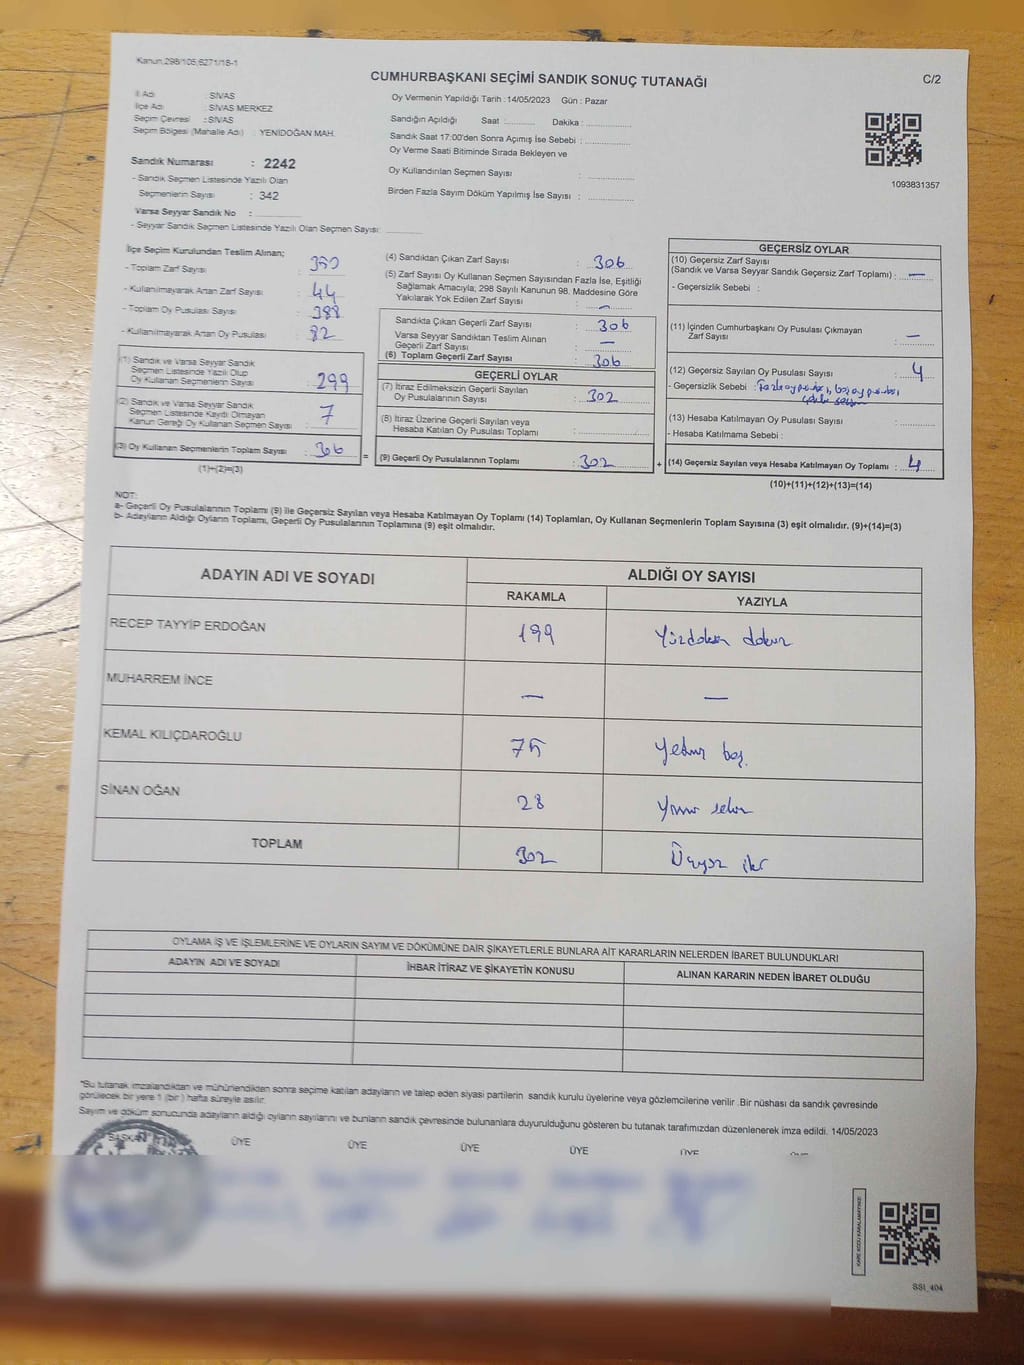 Kanun.298/105,6271/18-1
CUMHURBAŞKANI SEÇİMİ SANDIK SONUÇ TUTANAĞI
C/2
İl Adı : SİVAS
İlçe Adı : SİVAS MERKEZ
Seçim Çevresi : SİVAS
Seçim Bölgesi (Mahalle Adı) : YENİDOĞAN MAH.
Oy Vermenin Yapıldığı Tarih : 14/05/2023 Gün : Pazar
Sandığın Açıldığı Saat : Dakika :
Sandık Saat 17:00'den Sonra Açımış İse Sebebi :
Oy Verme Saati Bitiminde Sırada Bekleyen ve
Oy Kullandırılan Seçmen Sayısı :
Birden Fazla Sayım Döküm Yapılmış İse Sayısı :
1093831357
Sandık Numarası : 2242
- Sandık Seçmen Listesinde Yazılı Olan
Seçmenlerin Sayısı : 342
Varsa Seyyar Sandık No :
- Seyyar Sandık Seçmen Listesinde Yazılı Olan Seçmen Sayısı:
İlçe Seçim Kurulundan Teslim Alınan;
- Toplam Zarf Sayısı : 350
- Kullanılmayarak Artan Zarf Sayısı : 44
- Toplam Oy Pusulası Sayısı : 388
- Kullanılmayarak Artan Oy Pusulası : 82
(1) Sandık ve Varsa Seyyar Sandık
Seçmen Listesinde Yazılı Olup
Oy Kullanan Seçmenlerin Sayısı : 299
(2) Sandık ve Varsa Seyyar Sandık
Seçmen Listesinde Kaydı Olmayan
Kanun Gereği Oy Kullanan Seçmen Sayısı : 7
(3) Oy Kullanan Seçmenlerin Toplam Sayısı : 306
(1)+(2)=(3)
(4) Sandıktan Çıkan Zarf Sayısı : 306
(5) Zarf Sayısı Oy Kullanan Seçmen Sayısından Fazla İse, Eşitliği
Sağlamak Amacıyla, 298 Sayılı Kanunun 98. Maddesine Göre
Yakılarak Yok Edilen Zarf Sayısı : —
Sandıkta Çıkan Geçerli Zarf Sayısı : 306
Varsa Seyyar Sandıktan Teslim Alınan
Geçerli Zarf Sayısı : —
(6) Toplam Geçerli Zarf Sayısı : 306
GEÇERLİ OYLAR
(7) İtiraz Edilmeksizin Geçerli Sayılan
Oy Pusulalarının Sayısı : 302
(8) İtiraz Üzerine Geçerli Sayılan veya
Hesaba Katılan Oy Pusulası Toplamı :
= (9) Geçerli Oy Pusulalarının Toplamı : 302
GEÇERSİZ OYLAR
(10) Geçersiz Zarf Sayısı
(Sandık ve Varsa Seyyar Sandık Geçersiz Zarf Toplamı) : —
- Geçersizlik Sebebi :
(11) İçinden Cumhurbaşkanı Oy Pusulası Çıkmayan
Zarf Sayısı : —
(12) Geçersiz Sayılan Oy Pusulası Sayısı : 4
- Geçersizlik Sebebi : fazla oy pusulası, boş oy pusulası
(13) Hesaba Katılmayan Oy Pusulası Sayısı :
- Hesaba Katılmama Sebebi :
+ (14) Geçersiz Sayılan veya Hesaba Katılmayan Oy Toplamı : 4
(10)+(11)+(12)+(13)=(14)
NOT:
a- Geçerli Oy Pusulalarının Toplamı (9) ile Geçersiz Sayılan veya Hesaba Katılmayan Oy Toplamı (14) Toplamları, Oy Kullanan Seçmenlerin Toplam Sayısına (3) eşit olmalıdır. (9)+(14)=(3)
b- Adayların Aldığı Oyların Toplamı, Geçerli Oy Pusulalarının Toplamına (9) eşit olmalıdır.
ADAYIN ADI VE SOYADI
ALDIĞI OY SAYISI
RAKAMLA YAZIYLA
RECEP TAYYİP ERDOĞAN 199 Yüzdoksan dokuz
MUHARREM İNCE — —
KEMAL KILIÇDAROĞLU 75 Yetmiş beş
SİNAN OĞAN 28 Yirmi sekiz
TOPLAM 302 Üçyüz iki
OYLAMA İŞ VE İŞLEMLERİNE VE OYLARIN SAYIM VE DÖKÜMÜNE DAİR ŞİKAYETLERLE BUNLARA AİT KARARLARIN NELERDEN İBARET BULUNDUKLARI
ADAYIN ADI VE SOYADI İHBAR İTİRAZ VE ŞİKAYETİN KONUSU ALINAN KARARIN NEDEN İBARET OLDUĞU
"Bu tutanak imzalandıktan ve mühürlendikten sonra seçime katılan adayların ve talep eden siyasi partilerin sandık kurulu üyelerine veya gözlemcilerine verilir .Bir nüshası da sandık çevresinde
görülecek bir yere 1 (bir ) hafta süreyle asılır.
Sayım ve döküm sonucunda adayların aldığı oyların sayılarını ve bunların sandık çevresinde bulunanlara duyurulduğunu gösteren bu tutanak tarafımızdan düzenlenerek imza edildi. 14/05/2023
BAŞKAN ÜYE ÜYE ÜYE ÜYE ÜYE
KARE KODU KARALAMAYINIZ!
SSI_404